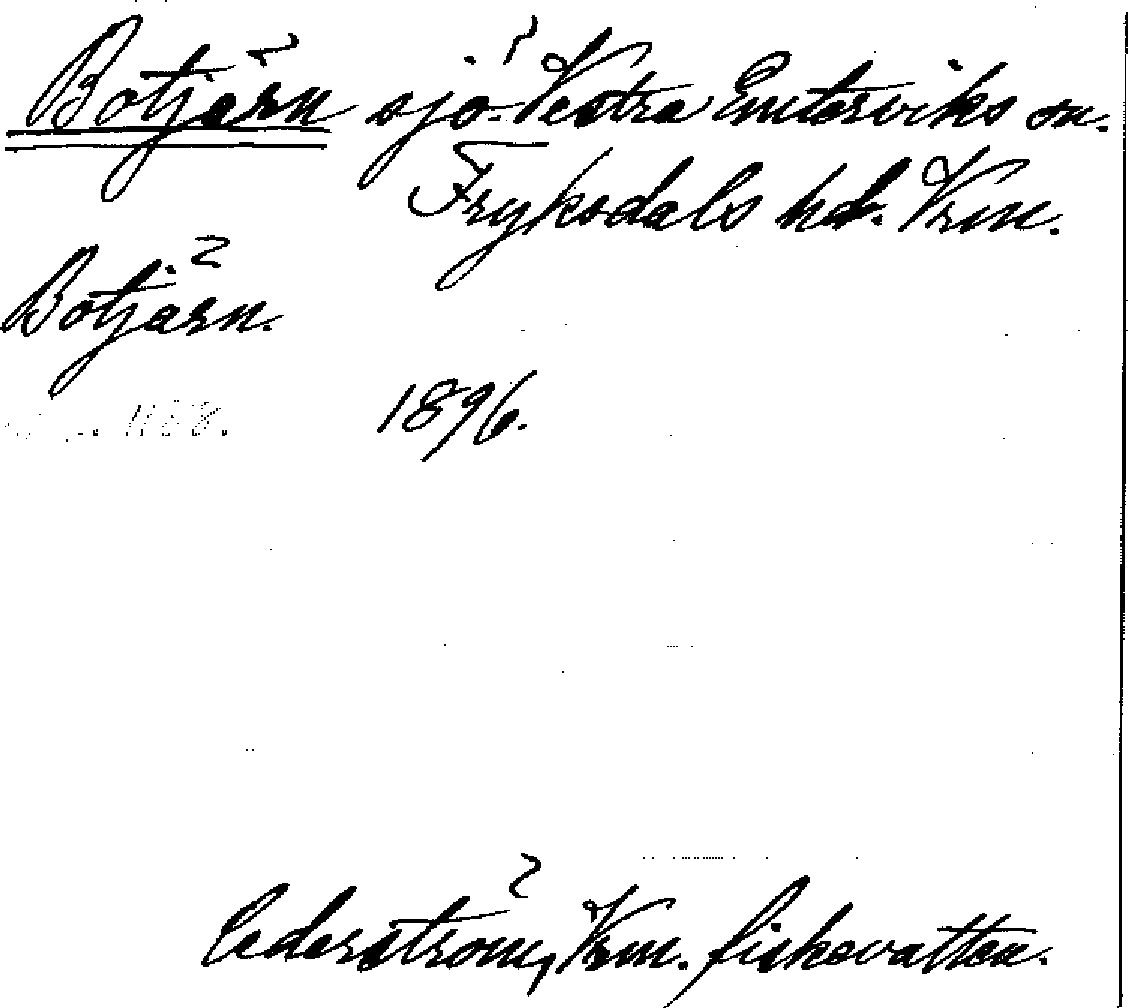 Botjärn sjö. Vestra Emterviks sn.
Fryksdals hd. Vrm.
Botjärn.
1896.
Cederström, Vrm. fiskevatten.